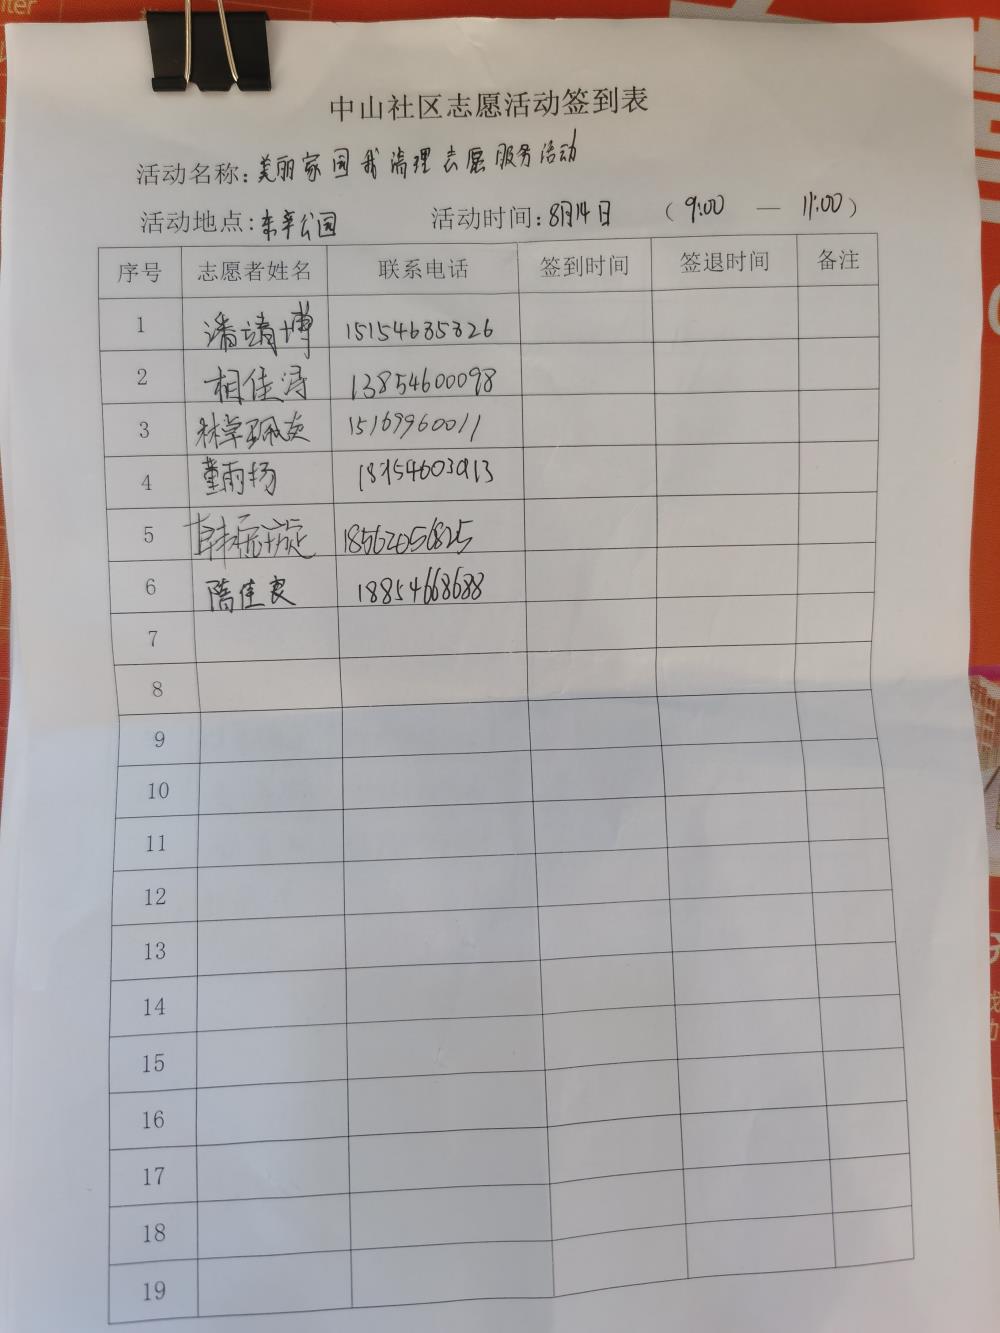 中山社区志愿活动签到表
活动名称:美丽家园我清理志愿服务活动
活动地点:东辛公园 活动时间:8月14日 (9:00 — 11:00)
序号 志愿者姓名 联系电话 签到时间 签退时间 备注
1 潘靖博 15154635326
2 相佳浔 13854600098
3 林卓珮炎 15169960011
4 董雨扬
5 18562056825
6 隋佳良 18854668688
7
8
9
10
11
12
13
14
15
16
17
18
19